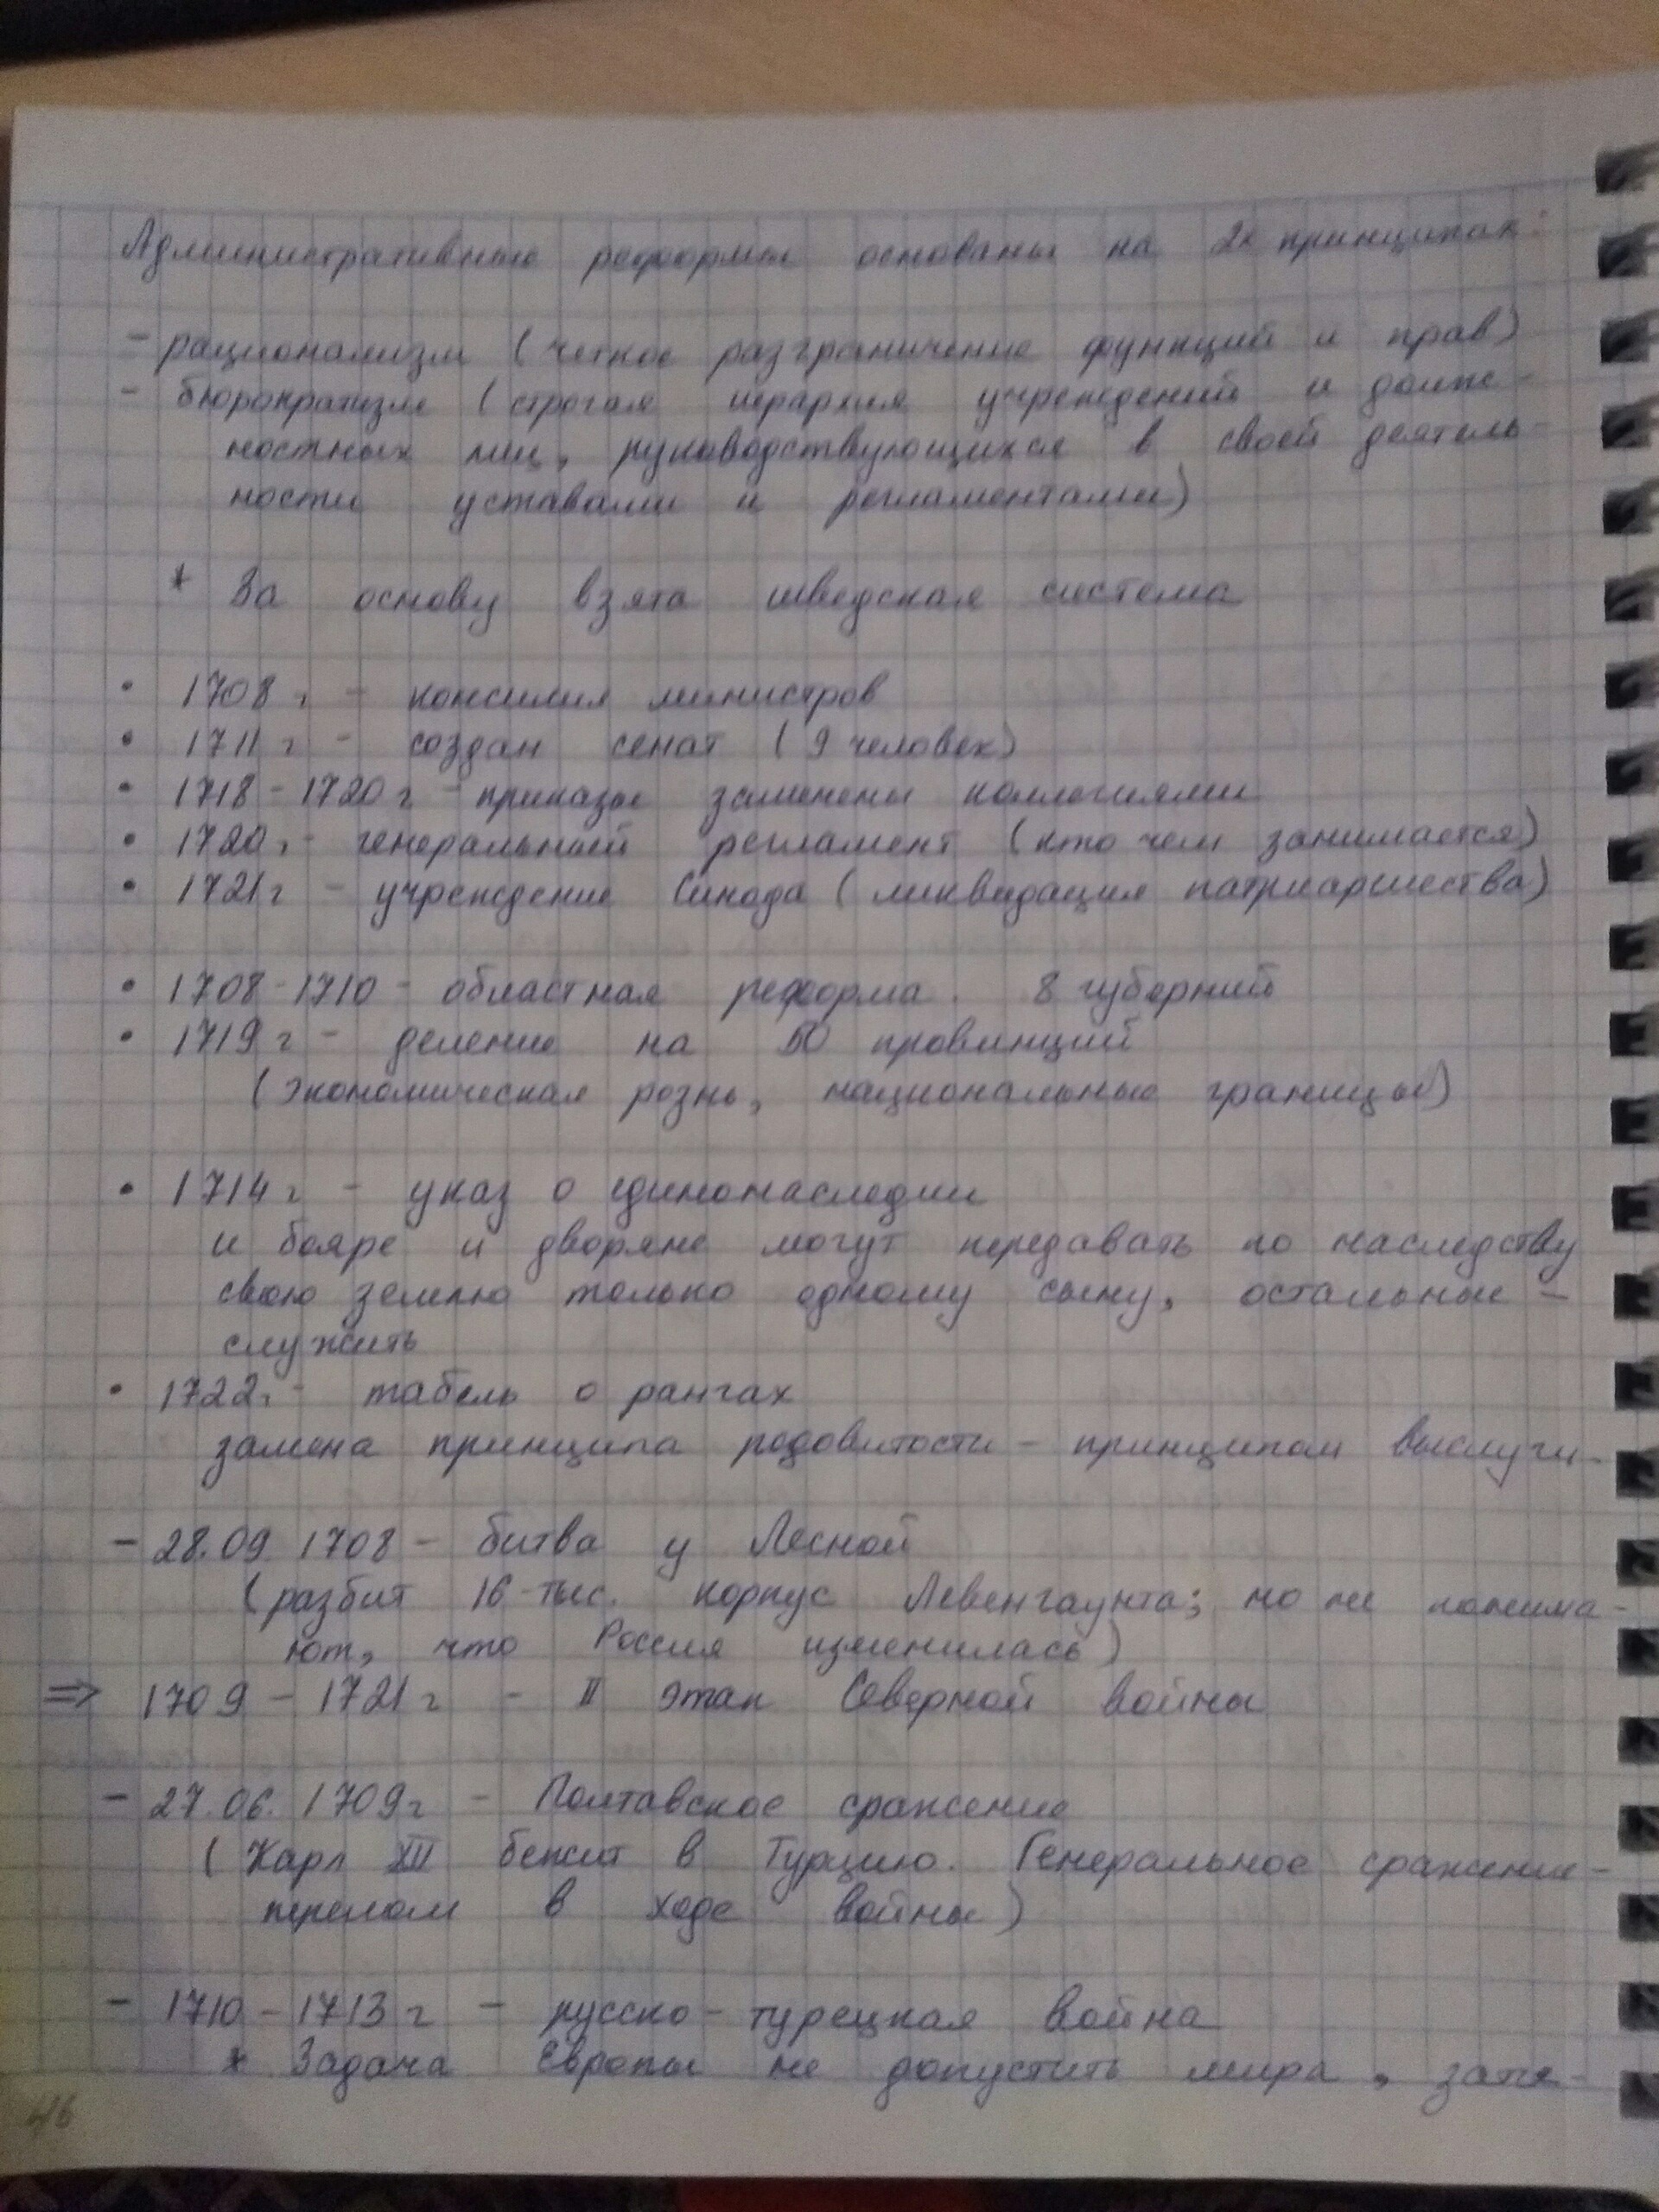 Административные реформы основаны на 2х принципах:
- рационализм (четкое разграничение функций и прав)
- бюрократизм (строгая иерархия учреждений и долж-
ностных лиц, руководствующихся в своей деятель-
ности уставами и регламентами)
* За основу взята шведская система
• 1708 г - консилия министров
• 1711 г - создан сенат (9 человек)
• 1718 - 1720 г - приказы заменены коллегиями
• 1720 г - генеральный регламент (кто чем занимается)
• 1721 г - учреждение Синода (ликвидация патриаршества)
• 1708-1710 - областная реформа. 8 губерний
• 1719 г - деление на 50 провинций
(экономическая рознь, национальные границы)
• 1714 г - указ о единонаследии
и бояре и дворяне могут передавать по наследству
свою землю только одному сыну, остальные -
служить
• 1722г - табель о рангах
замена принципа родовитости - принципом выслуги.
- 28.09 1708 - битва у Лесной
(разбит 16-тыс. корпус Левенгаупта; но не понима-
ют, что Россия изменилась)
⇒ 1709 - 1721 г - II этап Северной войны
- 27.06. 1709г - Полтавское сражение
(Карл XII бежит в Турцию. Генеральное сражение-
перелом в ходе войны)
- 1710 - 1713 г - русско-турецкая война
* Задача Европы не допустить мира, затя-
46